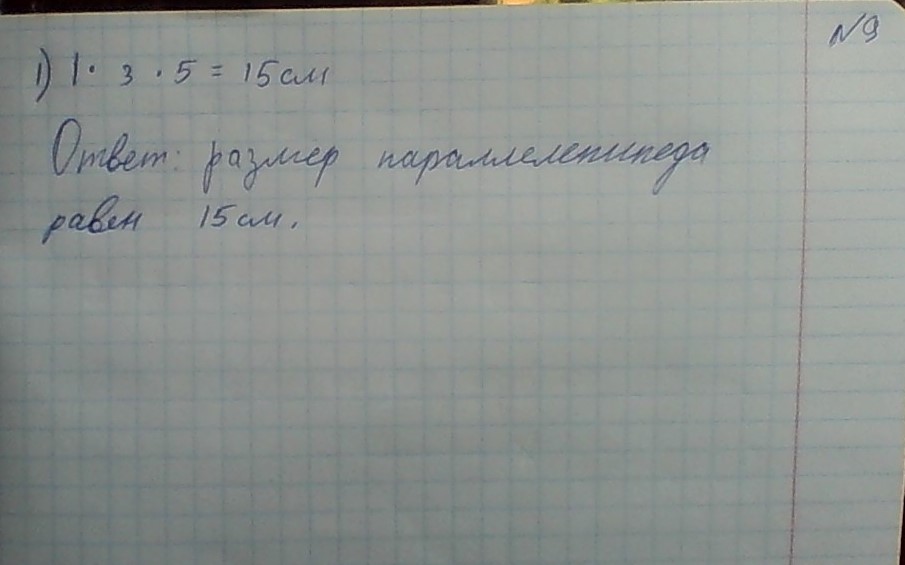 №9
1) 1 · 3 · 5 = 15 см
Ответ: размер параллелепипеда
равен 15 см.